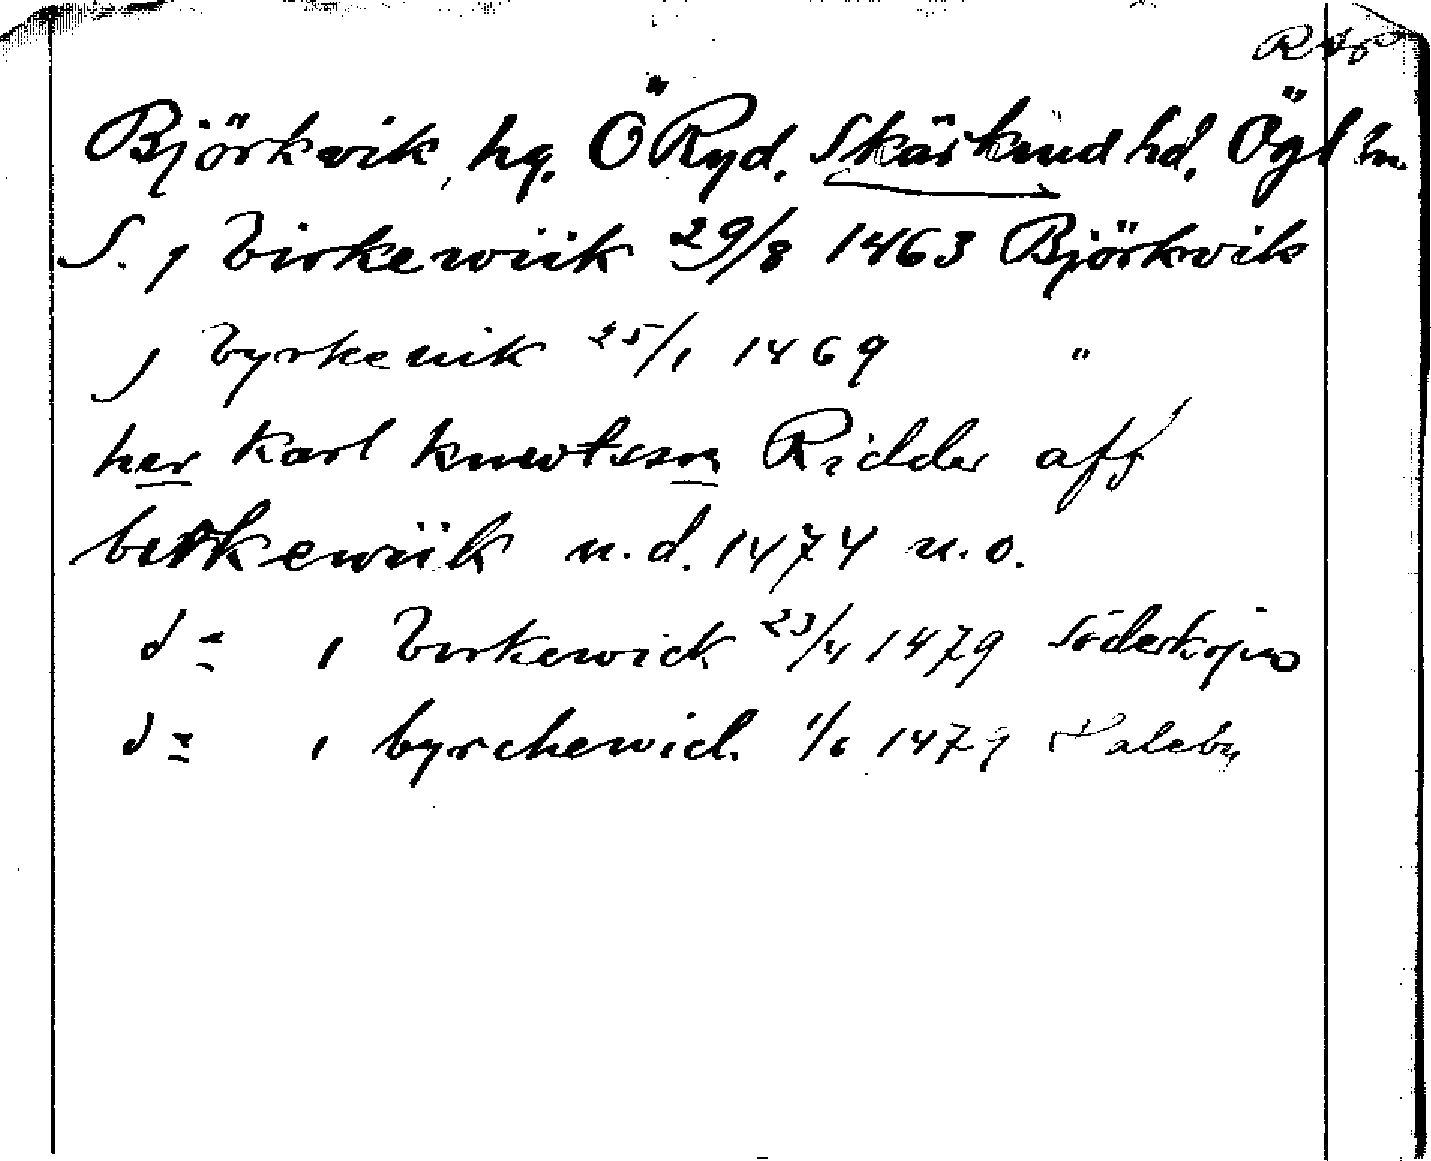 RAp
Björkvik, hg. Ö Ryd. Skärkind hd. Ögl ln.
S. j birkewiik 29/8 1463 Björkvik
j byrkeuik 25/1 1469 "
her Karl knwtsson Ridder aff
birkewiik u.d. 1474 u.o.
d= i birkewick 23/4 1479 Söderköping
d= i byrchewich 1/6 1479 Kaleby